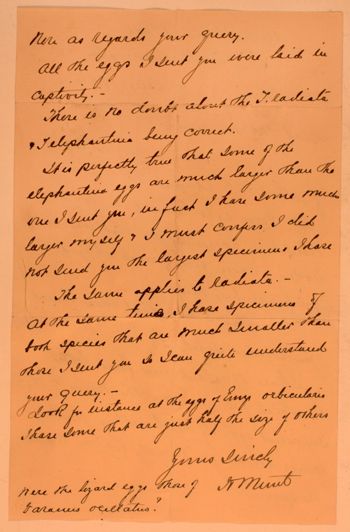 Now as regards your query.
All the eggs I sent you were laid in
captivity. -
There is no doubt about the T. radiata
& T. elephantina being correct.
It is perfectly true that some of the
elephantina eggs are much larger than the
one I sent you, in fact I have some much
larger myself & I must confess I did
not send you the largest specimens I have
The same applies to radiata. -
At the same time, I have specimens of
both species that are much smaller than
those I sent you so I can quite understand
your query. -
Look for instance at the eggs of Emys orbicularis
I have some that are just half the size of others
Yours Sincly
Were the lizard eggs those of
Varanus ocellatus?